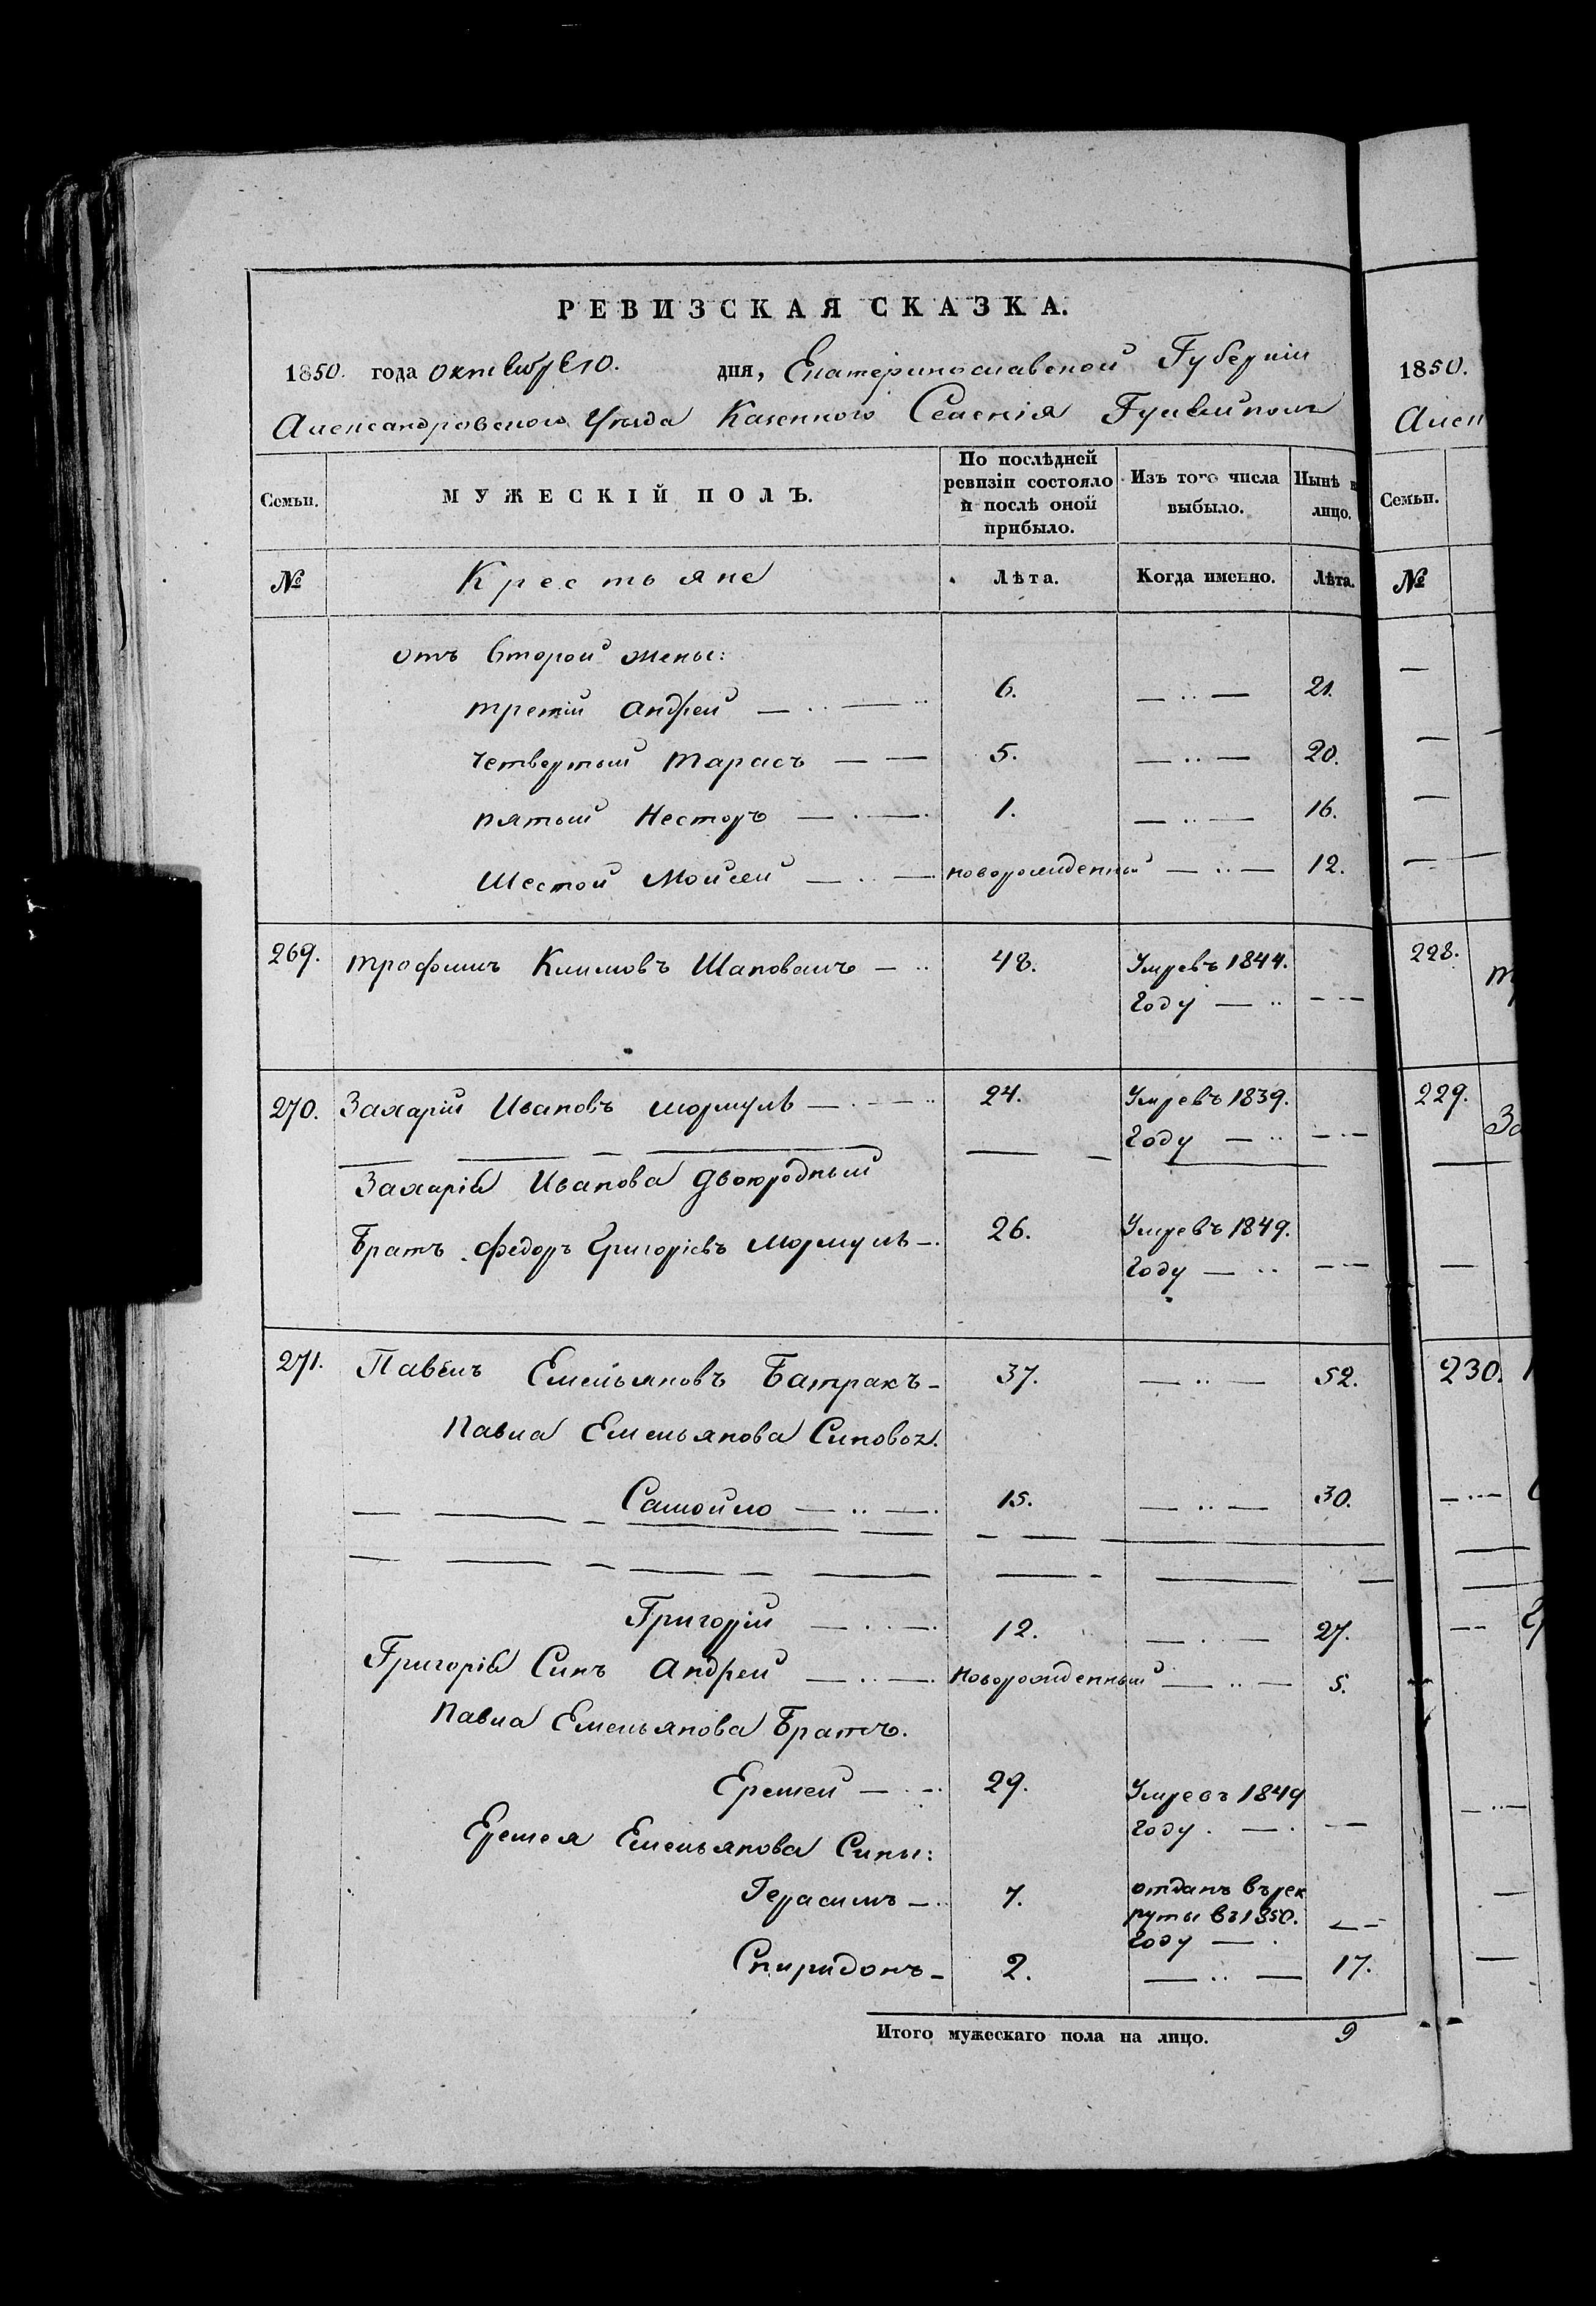 РЕВИЗСКАЯ СКАЗКА.
1850. года октября 10. дня, Екатеринославской Губернии
Александровского Уезда Казенного Селенія Гуляйполя
Семьи. МУЖЕСКІЙ ПОЛЪ. По послѣдней ревизіи состояло и послѣ оной прибыло. Изъ того числа выбыло. Нынѣ на лицо.
№ Крестьяне Лѣта. Когда именно. Лѣта.
отъ второй жены:
третій Андрей — .. — .. 6. — .. — 21.
четвертый Тарасъ — — 5. — .. — 20.
пятый Несторъ — . — . 1. — .. — 16.
Шестой Моисей — .. — новорожденный — .. — 12.
269. Трофимъ Климовъ Шаповалъ — .. 48. Умре въ 1844.
году — .. — - —
270. Захарій Ивановъ Мормуль — . - — .. 24. Умре въ 1839.
году — .. — - —
Захарія Иванова Двоюродный
Братъ Федоръ Григоріевъ Мормуль —. 26. Умре въ 1849.
году — .. — - —
271. Павелъ Емельяновъ Батракъ - 37. — .. — 52.
Павла Емельянова Синовя.
Самойло — .. — . 15. — .. — 30.
Григорій — . . — . 12. — . . — 27.
Григорія Синъ Андрей — .. — . Новорожденный — .. — 5.
Павла Емельянова Братъ.
Еремей — . - . 29. Умре въ 1849
году. — . - —
Еремея Емельянова Сины:
Герасимъ — .. 7. отданъ въ рек
руты въ 1850.
году — . — -
Спиридонъ - 2. — .. — 17.
Итого мужескаго пола на лицо. 9
1850.
Алек
Семьи.
№
228.
229.
230.